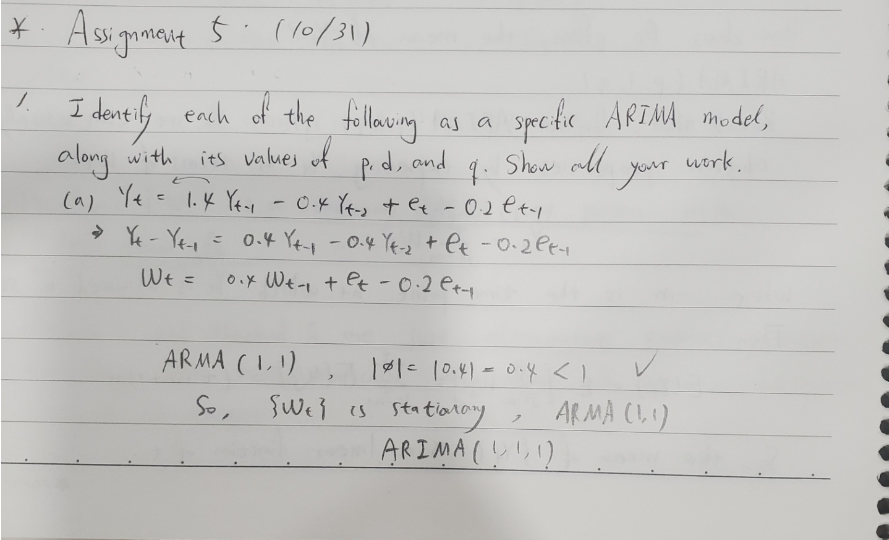 * Assignment 5. (10/31)
1. Identify each of the following as a specific ARIMA model,
along with its values of p, d, and q. Show all your work.
(a) Yt = 1.4 Yt-1 - 0.4 Yt-2 + et - 0.2 et-1
⇒ Yt - Yt-1 = 0.4 Yt-1 - 0.4 Yt-2 + et - 0.2 et-1
Wt = 0.4 Wt-1 + et - 0.2 et-1
ARMA (1, 1) , |ø| = |0.4| = 0.4 < 1 ✓
So, {Wt} is stationary, ARMA (1, 1)
ARIMA (1, 1, 1)